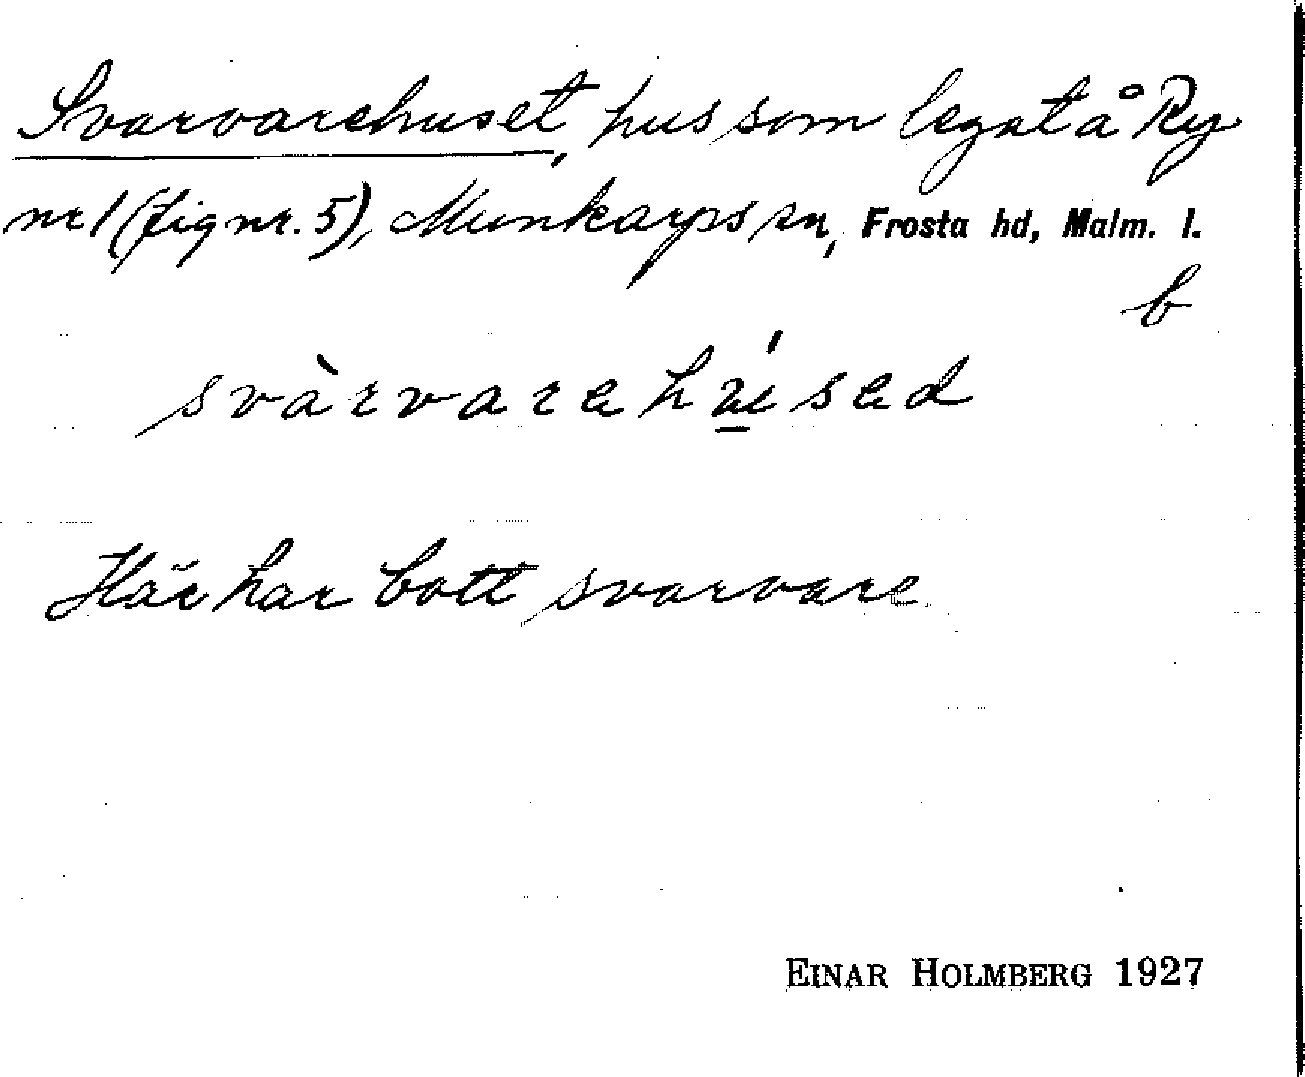 Svarvarehuset, hus som legat å Ry
nr 1 (fig nr. 5), Munkarps sn, Frosta hd, Malm. l.
b
svàrvarehúsed
Här har bott svarvare
EINAR HOLMBERG 1927